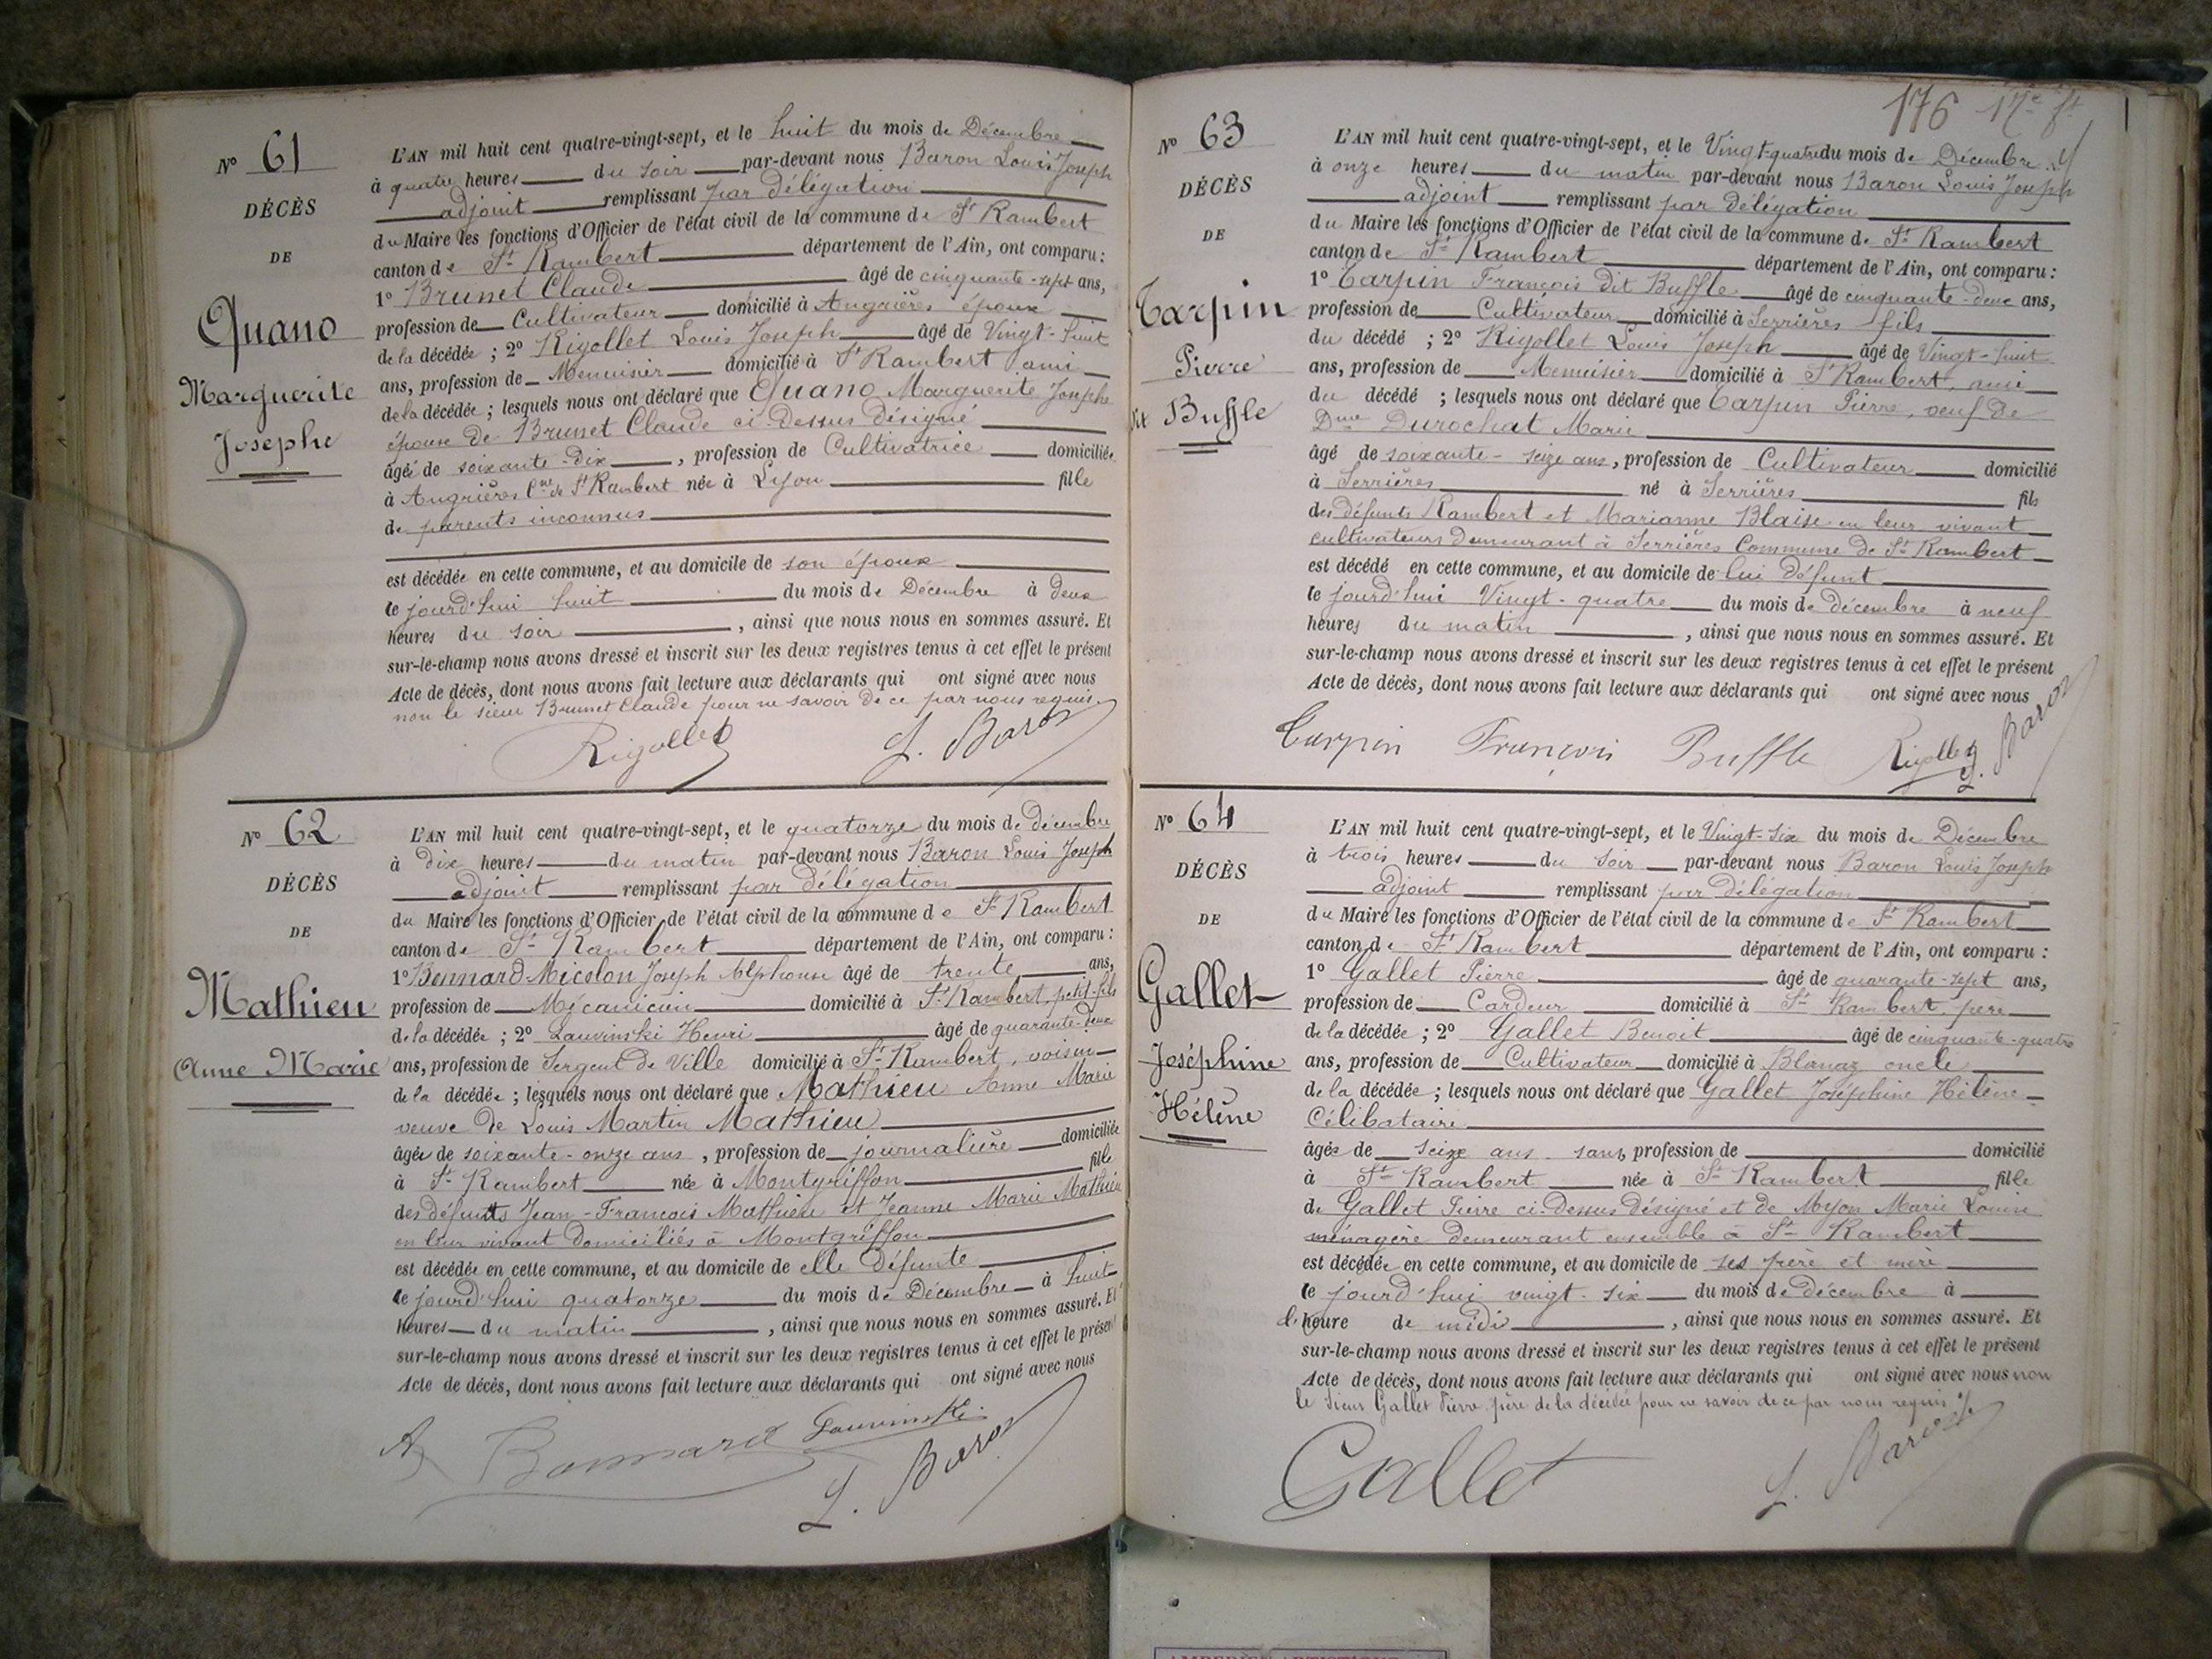 N° 61
DÉCÈS
DE
Quano
Marguerite
Josephe
L'AN mil huit cent quatre-vingt-sept, et le huit du mois de Décembre
à quatre heures du soir par-devant nous Baron Louis Joseph
adjoint remplissant par délégation
du Maire les fonctions d'Officier de l'état civil de la commune de St Rambert
canton de St Rambert département de l'Ain, ont comparu :
1° Brunet Claude âgé de cinquante-sept ans,
profession de Cultivateur domicilié à Angrières époux
de la décédée ; 2° Rigollet Louis Joseph âgé de Vingt-huit
ans, profession de Menuisier domicilié à St Rambert ami
de la décédée ; lesquels nous ont déclaré que Quano Marguerite Josephe
épouse de Brunet Claude ci-dessus désigné
âgée de soixante-dix, profession de Cultivatrice domiciliée
à Angrières Cne de St Rambert née à Lyon fille
de parents inconnus
est décédée en cette commune, et au domicile de son époux
le jourd'hui huit du mois de Décembre à deux
heures du soir, ainsi que nous nous en sommes assuré. Et
sur-le-champ nous avons dressé et inscrit sur les deux registres tenus à cet effet le présent
Acte de décès, dont nous avons fait lecture aux déclarants qui ont signé avec nous
non le sieur Brunet Claude pour ne savoir de ce par nous requis
Rigollet L. Baron
N° 62
DÉCÈS
DE
Mathieu
Anne Marie
L'AN mil huit cent quatre-vingt-sept, et le quatorze du mois de décembre
à dix heures du matin par-devant nous Baron Louis Joseph
adjoint remplissant par délégation
du Maire les fonctions d'Officier de l'état civil de la commune de St Rambert
canton de St Rambert département de l'Ain, ont comparu :
1° Bonnard Micolon Joseph Alphonse âgé de trente ans,
profession de Mécanicien domicilié à St Rambert, petit-fils
de la décédée ; 2° Lauvinski Henri âgé de quarante-deux
ans, profession de Sergent de Ville domicilié à St Rambert, voisin
de la décédée ; lesquels nous ont déclaré que Mathieu Anne Marie
veuve de Louis Martin Mathieu
âgée de soixante-onze ans, profession de journalière domiciliée
à St Rambert née à Montgriffon fille
des défunts Jean-François Mathieu et Jeanne Marie Mathieu
en leur vivant domiciliés à Montgriffon
est décédée en cette commune, et au domicile de elle défunte
le jourd'hui quatorze du mois de Décembre à huit
heures du matin, ainsi que nous nous en sommes assuré. Et
sur-le-champ nous avons dressé et inscrit sur les deux registres tenus à cet effet le présent
Acte de décès, dont nous avons fait lecture aux déclarants qui ont signé avec nous
A Bonnard Lauvinski
L. Baron
176 17e ft
N° 63
DÉCÈS
DE
Carpin
Pierre
dit Buffle
L'AN mil huit cent quatre-vingt-sept, et le Vingt-quatre du mois de Décembre
à onze heures du matin par-devant nous Baron Louis Joseph
adjoint remplissant par délégation
du Maire les fonctions d'Officier de l'état civil de la commune de St Rambert
canton de St Rambert département de l'Ain, ont comparu :
1° Carpin François dit Buffle âgé de cinquante-deux ans,
profession de Cultivateur domicilié à Serrières fils
du décédé ; 2° Rigollet Louis Joseph âgé de Vingt-huit
ans, profession de Menuisier domicilié à St Rambert, ami
du décédé ; lesquels nous ont déclaré que Carpin Pierre, veuf de
Dme Durochat Marie
âgé de soixante-seize ans, profession de Cultivateur domicilié
à Serrières né à Serrières fils
des défunts Rambert et Marianne Blaise en leur vivant
cultivateurs demeurant à Serrières Commune de St Rambert
est décédé en cette commune, et au domicile de lui défunt
le jourd'hui Vingt-quatre du mois de décembre à neuf
heures du matin, ainsi que nous nous en sommes assuré. Et
sur-le-champ nous avons dressé et inscrit sur les deux registres tenus à cet effet le présent
Acte de décès, dont nous avons fait lecture aux déclarants qui ont signé avec nous
Carpin François Buffle Rigollet L. Baron
N° 64
DÉCÈS
DE
Gallet
Joséphine
Hélène
L'AN mil huit cent quatre-vingt-sept, et le Vingt-six du mois de Décembre
à trois heures du soir par-devant nous Baron Louis Joseph
adjoint remplissant par délégation
du Maire les fonctions d'Officier de l'état civil de la commune de St Rambert
canton de St Rambert département de l'Ain, ont comparu :
1° Gallet Pierre âgé de quarante-sept ans,
profession de Cardeur domicilié à St Rambert, père
de la décédée ; 2° Gallet Benoit âgé de cinquante-quatre
ans, profession de Cultivateur domicilié à Blanaz, oncle
de la décédée ; lesquels nous ont déclaré que Gallet Joséphine Hélène
Célibataire
âgée de seize ans sans profession de domicilié
à St Rambert née à St Rambert fille
de Gallet Pierre ci-dessus désigné et de Myon Marie Louise
ménagère demeurant ensemble à St Rambert
est décédée en cette commune, et au domicile de ses père et mère
le jourd'hui vingt-six du mois de décembre à
l'heure de midi, ainsi que nous nous en sommes assuré. Et
sur-le-champ nous avons dressé et inscrit sur les deux registres tenus à cet effet le présent
Acte de décès, dont nous avons fait lecture aux déclarants qui ont signé avec nous non
le sieur Gallet Pierre père de la décédée pour ne savoir de ce par nous requis
Gallet L. Baron